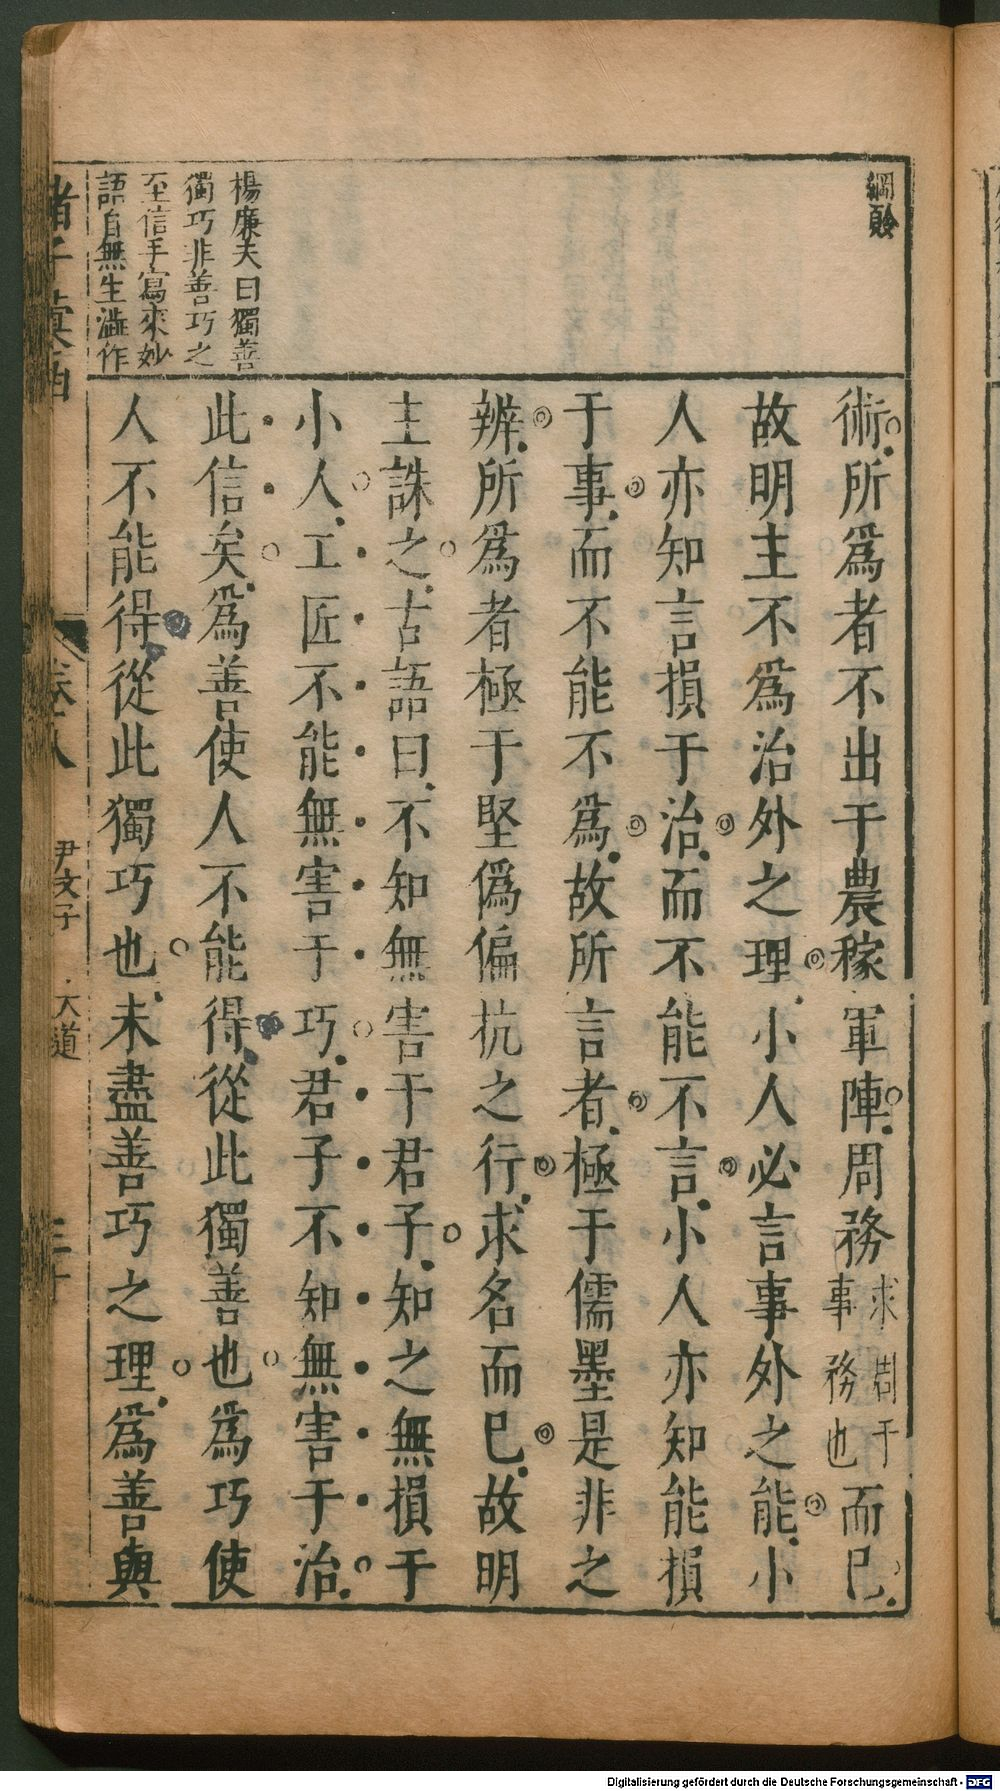 綱領
楊廉夫曰獨善
獨巧非善巧之
至信手寫來妙
語自無生澁作
術所爲者不出于農稼軍陣周務求周于事務也而巳
故明主不爲治外之理小人必言事外之能小
人亦知言損于治而不能不言小人亦知能損
于事而不能不爲故所言者極于儒墨是非之
辨所爲者極于堅僞偏抗之行求名而巳故明
主誅之古語曰不知無害于君子知之無損于
小人工匠不能無害于巧君子不知無害于治
此信矣爲善使人不能得從此獨善也爲巧使
人不能得從此獨巧也未盡善巧之理爲善與
諸子彙函
卷八
尹文子
大道
三十
Digitalisierung gefördert durch die Deutsche Forschungsgemeinschaft - DFG